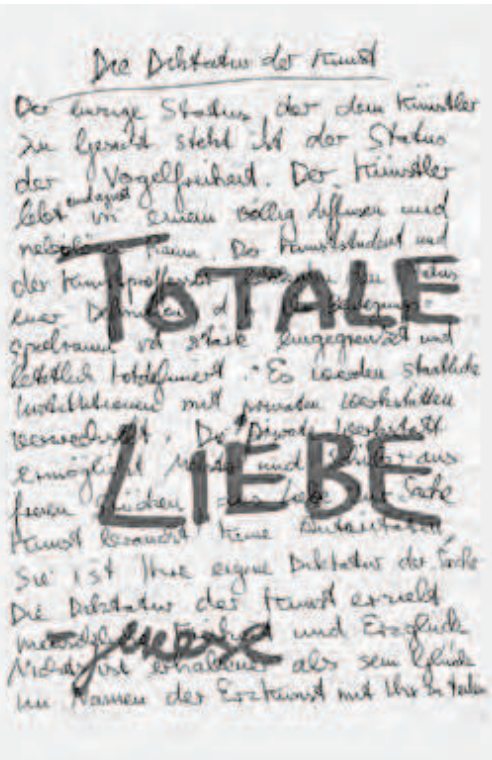 Die Diktatur der Kunst
Der einzige Status, der dem Künstler
zu Gesicht steht ist der Status
der Vogelfreiheit. Der Künstler
lebt in einem völlig diffusen und
nebulösen Raum. Der Kunststudent und
der Kunstprofessor
TOTALE
einer
spielraum ist stark eingegrenzt und
letztlich totdefiniert. Es werden staatliche
Institutionen mit privaten Werkstätten
verwechselt. Die private Werkstatt
LIEBE
ermöglicht Meister und Schüler aus
freien Stücken Liebe zur Sache
Kunst braucht keine Autoritäten,
Sie ist Ihre eigene Diktatur der Sache
Die Diktatur der Kunst erzielt
und Erzglück
Nichts ist erhabener als sein Glück
im Namen der Erzkunst mit Ihr zu teilen